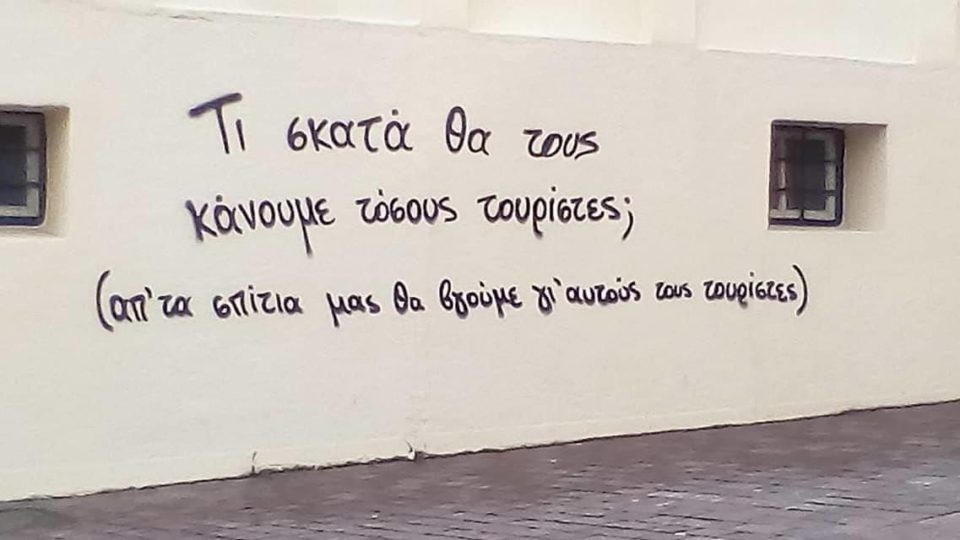 Τι σκατά θα τους
κάνουμε τόσους τουρίστες;
(απ'τα σπίτια μας θα βγούμε γι'αυτούς τους τουρίστες)